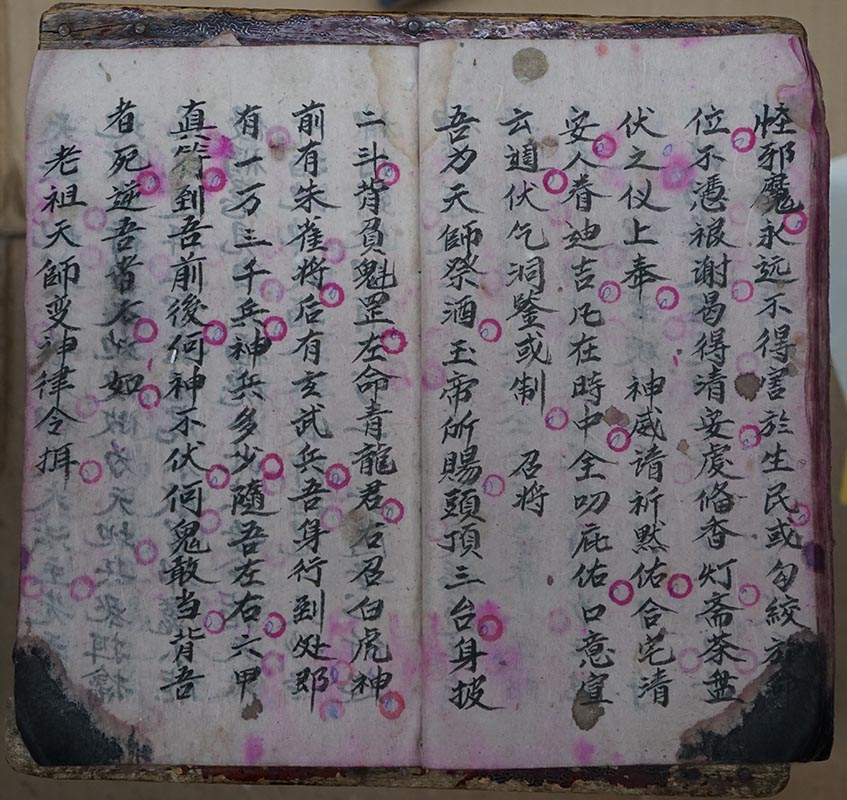 怪邪魔永远不得害於生民或勾絞
位不憑根謝曷得清安虔俻香灯斋茶盘
伏之仪上奉 神威请祈黙佑合宅清
安人眷迪吉凡在時中全叨庇佑口意宣
云廻伏乞洞鑒或制 召将
吾为天師祭酒玉帝所賜頭頂三台身披
二斗背負魁罡左命青龍君右召白虎神
前有朱雀将后有玄武兵吾身行到处即
有一万三千兵神兵多少隨吾左右六甲
真符到吾前後何神不伏何鬼敢当背吾
者死逆吾者不 如
老祖天師变神律令揖